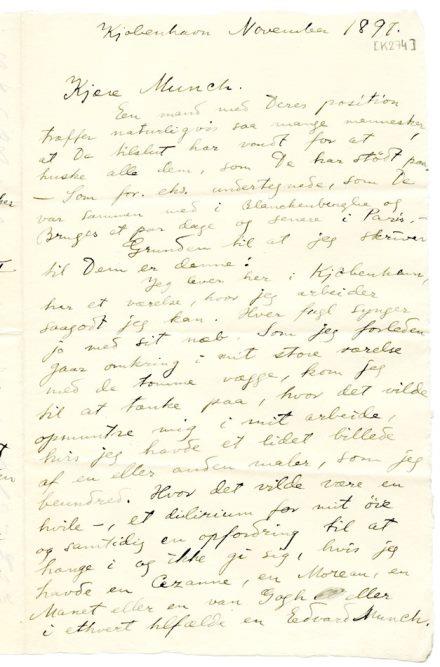 Kjøbenhavn November 1897.
[K274]
Kjære Munch.
Een mand med Deres position
træffer naturligvis saa mange mennesker,
at De tilslut har vondt for at
huske alle dem, som De har stødt paa.
– Som for. eks. undertegnede, som De
var sammen med i Blanckenberghe og
Bruges et par dage og senere i Paris. –
Grunden til at jeg skriver
til Dem er denne:
Jeg lever her i Kjøbenhavn,
har et værelse, hvor jeg arbeider
saagodt jeg kan. Hver fugl synger
jo med sit næb. Som jeg forleden
gaar omkring i mit store værelse
med de tomme vægge, kom jeg
til at tænke paa, hvor det vilde
opmuntre mig i mit arbeide,
hvis jeg havde et lidet billede
af en eller anden maler, som jeg
beundred. Hvor det vilde være en
hvile –, et dilirium for mit öie
og samtidig en opfordring til at
hange i og ikke gi sig, hvis jeg
havde en Cezanne, en Moreau, en
Manet eller en van Gogh eller
i ethvert tilfælde en Edvard Munch.